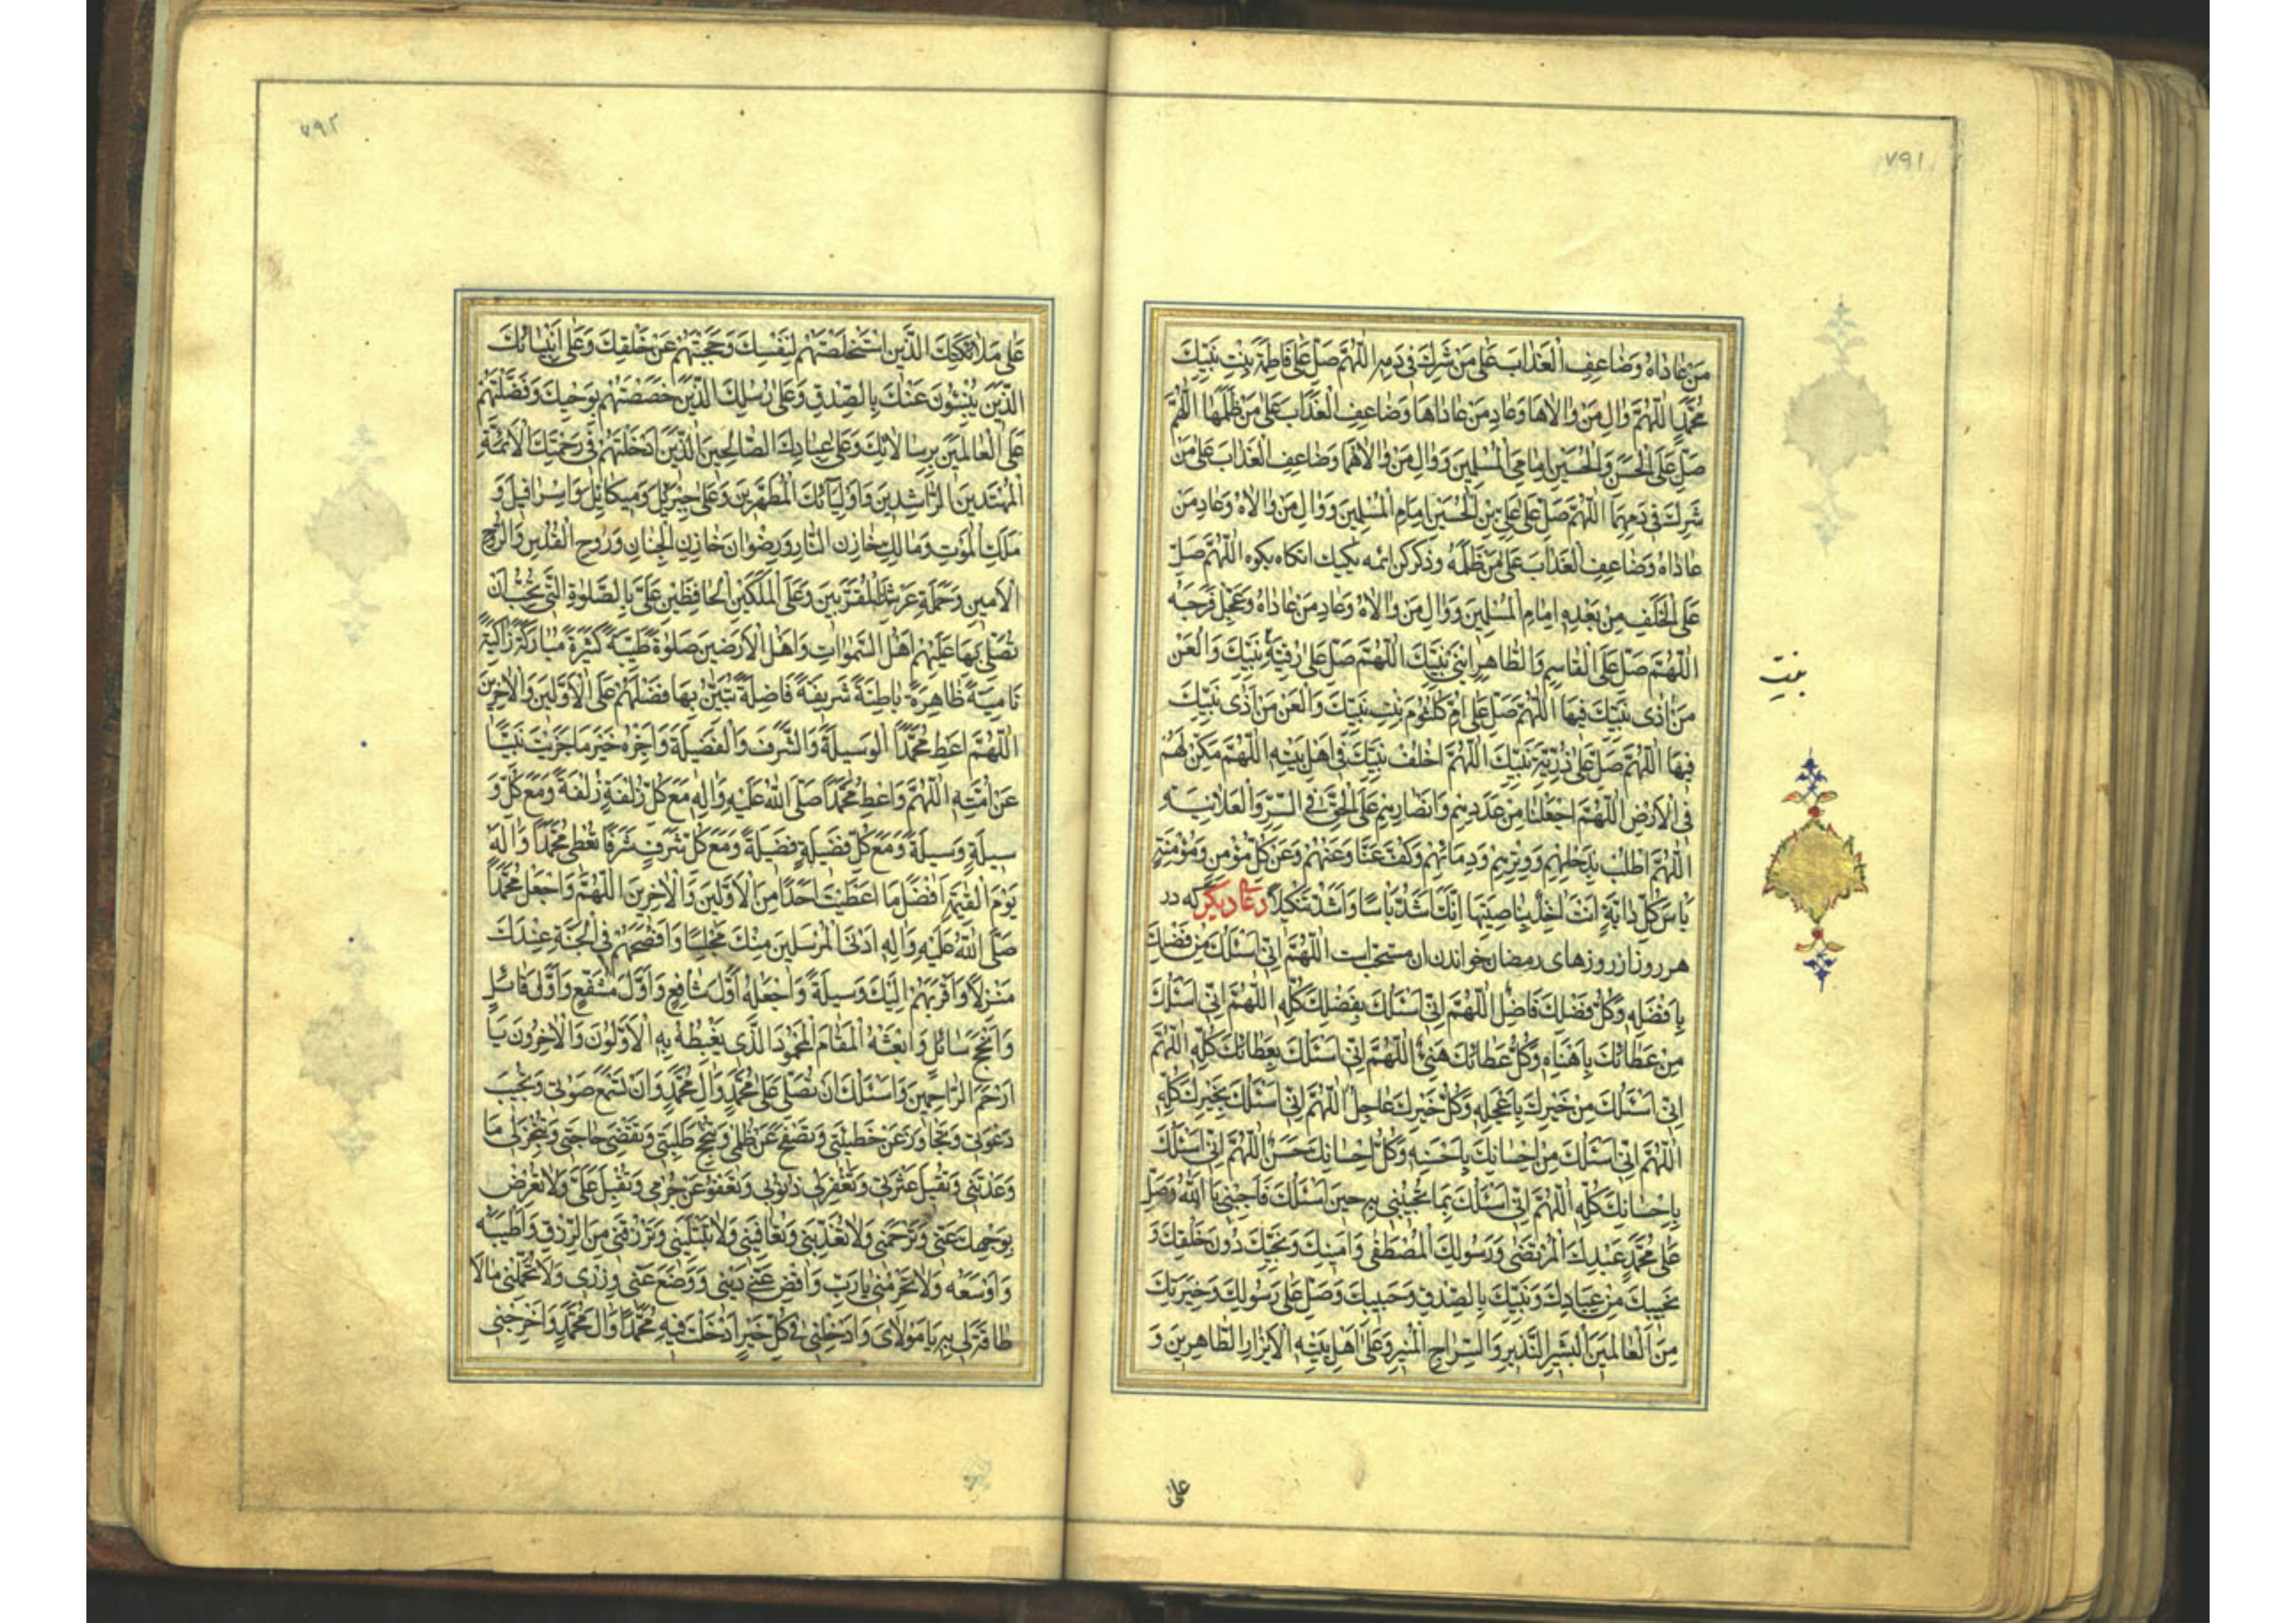 ٧٩١
مَنْ عَادَاهُ وَضَاعِفِ الْعَذَابَ عَلَى مَنْ شَرِكَ فِي دَمِهِ اَللّٰهُمَّ صَلِّ عَلَى فَاطِمَةَ بِنْتِ نَبِيِّكَ
مُحَمَّدٍ اَللّٰهُمَّ وَالِ مَنْ وَالَاهَا وَعَادِ مَنْ عَادَاهَا وَضَاعِفِ الْعَذَابَ عَلَى مَنْ ظَلَمَهَا اَللّٰهُمَّ
صَلِّ عَلَى الْحَسَنِ وَالْحُسَيْنِ اِمَامَيِ الْمُسْلِمِينَ وَوَالِ مَنْ وَالَاهُمَا وَضَاعِفِ الْعَذَابَ عَلَى مَنْ
شَرِكَ فِي دَمِهِمَا اَللّٰهُمَّ صَلِّ عَلَى عَلِيِّ بْنِ الْحُسَيْنِ اِمَامِ الْمُسْلِمِينَ وَوَالِ مَنْ وَالَاهُ وَعَادِ مَنْ
عَادَاهُ وَضَاعِفِ الْعَذَابَ عَلَى مَنْ ظَلَمَهُ وذكر كن ائمه يكيك انكاه بكوه اَللّٰهُمَّ صَلِّ
عَلَى الْخَلَفِ مِنْ بَعْدِهِ اِمَامِ الْمُسْلِمِينَ وَوَالِ مَنْ وَالَاهُ وَعَادِ مَنْ عَادَاهُ وَعَجِّلْ فَرَجَهُ
اَللّٰهُمَّ صَلِّ عَلَى الْقَاسِمِ وَالطَّاهِرِ ابْنَيْ نَبِيِّكَ اَللّٰهُمَّ صَلِّ عَلَى رُقَيَّةِ نَبِيِّكَ وَالْعَنْ
بنت
مَنْ اٰذَى نَبِيَّكَ فِيهَا اَللّٰهُمَّ صَلِّ عَلَى اُمِّ كُلْثُومَ بِنْتِ نَبِيِّكَ وَالْعَنْ مَنْ اٰذَى نَبِيَّكَ
فِيهَا اَللّٰهُمَّ صَلِّ عَلَى ذُرِّيَّةِ نَبِيِّكَ اَللّٰهُمَّ اخْلُفْ نَبِيَّكَ فِي اَهْلِ بَيْتِهِ اَللّٰهُمَّ مَكِّنْ لَهُمْ
فِي الْاَرْضِ اَللّٰهُمَّ اجْعَلْنَا مِنْ عَدَدِهِمْ وَاَنْصَارِهِمْ عَلَى الْحَقِّ فِي السِّرِّ وَالْعَلَانِيَةِ
اَللّٰهُمَّ اطْلُبْ بِذَحْلِهِمْ وَوِتْرِهِمْ وَدِمَائِهِمْ وَكُفَّ عَنَّا وَعَنْهُمْ وَعَنْ كُلِّ مُؤْمِنٍ وَمُؤْمِنَةٍ
بَاْسَ كُلِّ دَابَّةٍ اَنْتَ اٰخِذٌ بِنَاصِيَتِهَا اِنَّكَ اَشَدُّ بَاْسًا وَاَشَدُّ تَنْكِيلًا دعاء ديكر كه در
هر روز از روزهاى رمضان خواندن ان مستحب است اَللّٰهُمَّ اِنِّي اَسْئَلُكَ مِنْ فَضْلِكَ
بِاَفْضَلِهِ وَكُلُّ فَضْلِكَ فَاضِلٌ اَللّٰهُمَّ اِنِّي اَسْئَلُكَ بِفَضْلِكَ كُلِّهِ اَللّٰهُمَّ اِنِّي اَسْئَلُكَ
مِنْ عَطَائِكَ بِاَهْنَاهِ وَكُلُّ عَطَائِكَ هَنِيءٌ اَللّٰهُمَّ اِنِّي اَسْئَلُكَ بِعَطَائِكَ كُلِّهِ اَللّٰهُمَّ
اِنِّي اَسْئَلُكَ مِنْ خَيْرِكَ بِاَعْجَلِهِ وَكُلُّ خَيْرِكَ عَاجِلٌ اَللّٰهُمَّ اِنِّي اَسْئَلُكَ بِخَيْرِكَ كُلِّهِ
اَللّٰهُمَّ اِنِّي اَسْئَلُكَ مِنْ اِحْسَانِكَ بِاَحْسَنِهِ وَكُلُّ اِحْسَانِكَ حَسَنٌ اَللّٰهُمَّ اِنِّي اَسْئَلُكَ
بِاِحْسَانِكَ كُلِّهِ اَللّٰهُمَّ اِنِّي اَسْئَلُكَ بِمَا تُجِيبُنِي بِهِ حِينَ اَسْئَلُكَ فَاَجِبْنِي يَا اَللّٰهُ وَصَلِّ
عَلَى مُحَمَّدٍ عَبْدِكَ الْمُرْتَضَى وَرَسُولِكَ الْمُصْطَفَى وَاَمِينِكَ وَنَجِيِّكَ دُونَ خَلْقِكَ وَ
نَجِيبِكَ مِنْ عِبَادِكَ وَنَبِيِّكَ بِالصِّدْقِ وَحَبِيبِكَ وَصَلِّ عَلَى رَسُولِكَ وَخِيَرَتِكَ
مِنَ الْعَالَمِينَ الْبَشِيرِ النَّذِيرِ وَالسِّرَاجِ الْمُنِيرِ وَعَلَى اَهْلِ بَيْتِهِ الْاَبْرَارِ الطَّاهِرِينَ وَ
على
٧٩٢
عَلَى مَلَائِكَتِكَ الَّذِينَ اسْتَخْلَصْتَهُمْ لِنَفْسِكَ وَحَجَبْتَهُمْ عَنْ خَلْقِكَ وَعَلَى اَنْبِيَائِكَ
الَّذِينَ يُنْبِئُونَ عَنْكَ بِالصِّدْقِ وَعَلَى رُسُلِكَ الَّذِينَ خَصَصْتَهُمْ بِوَحْيِكَ وَفَضَّلْتَهُمْ
عَلَى الْعَالَمِينَ بِرِسَالَاتِكَ وَعَلَى عِبَادِكَ الصَّالِحِينَ الَّذِينَ اَدْخَلْتَهُمْ فِي رَحْمَتِكَ الْاَئِمَّةِ
الْمُهْتَدِينَ الرَّاشِدِينَ وَاَوْلِيَائِكَ الْمُطَهَّرِينَ وَعَلَى جِبْرَئِيلَ وَمِيكَائِيلَ وَاِسْرَافِيلَ وَ
مَلَكِ الْمَوْتِ وَمَالِكٍ خَازِنِ النَّارِ وَرِضْوَانَ خَازِنِ الْجِنَانِ وَرُوحِ الْقُدُسِ وَالرُّوحِ
الْاَمِينِ وَحَمَلَةِ عَرْشِكَ الْمُقَرَّبِينَ وَعَلَى الْمَلَكَيْنِ الْحَافِظَيْنِ عَلَيَّ بِالصَّلٰوةِ الَّتِي تُحِبُّ اَنْ
تُصَلِّيَ بِهَا عَلَيْهِمْ اَهْلُ السَّمٰوَاتِ وَاَهْلُ الْاَرَضِينَ صَلٰوةً طَيِّبَةً كَثِيرَةً مُبَارَكَةً زَاكِيَةً
نَامِيَةً ظَاهِرَةً بَاطِنَةً شَرِيفَةً فَاضِلَةً تُبَيِّنُ بِهَا فَضْلَهُمْ عَلَى الْاَوَّلِينَ وَالْاٰخِرِينَ
اَللّٰهُمَّ اَعْطِ مُحَمَّدًا الْوَسِيلَةَ وَالشَّرَفَ وَالْفَضِيلَةَ وَاجْزِهِ خَيْرَ مَا جَزَيْتَ نَبِيًّا
عَنْ اُمَّتِهِ اَللّٰهُمَّ وَاَعْطِ مُحَمَّدًا صَلَّى اللّٰهُ عَلَيْهِ وَاٰلِهِ مَعَ كُلِّ زُلْفَةٍ زُلْفَةً وَمَعَ كُلِّ وَ
سِيلَةٍ وَسِيلَةً وَمَعَ كُلِّ فَضِيلَةٍ فَضِيلَةً وَمَعَ كُلِّ شَرَفٍ شَرَفًا تُعْطِي مُحَمَّدًا وَاٰلَهُ
يَوْمَ الْقِيٰمَةِ اَفْضَلَ مَا اَعْطَيْتَ اَحَدًا مِنَ الْاَوَّلِينَ وَالْاٰخِرِينَ اَللّٰهُمَّ وَاجْعَلْ مُحَمَّدًا
صَلَّى اللّٰهُ عَلَيْهِ وَاٰلِهِ اَدْنَى الْمُرْسَلِينَ مِنْكَ مَجْلِسًا وَاَفْسَحَهُمْ فِي الْجَنَّةِ عِنْدَكَ
مَنْزِلًا وَاَقْرَبَهُمْ اِلَيْكَ وَسِيلَةً وَاجْعَلْهُ اَوَّلَ شَافِعٍ وَاَوَّلَ مُشَفَّعٍ وَاَوَّلَ قَائِلٍ
وَاَنْجَحَ سَائِلٍ وَابْعَثْهُ الْمَقَامَ الْمَحْمُودَ الَّذِي يَغْبِطُهُ بِهِ الْاَوَّلُونَ وَالْاٰخِرُونَ يَا
اَرْحَمَ الرَّاحِمِينَ وَاَسْئَلُكَ اَنْ تُصَلِّيَ عَلَى مُحَمَّدٍ وَاٰلِ مُحَمَّدٍ وَاَنْ تَسْمَعَ صَوْتِي وَتُجِيبَ
دَعْوَتِي وَتَجَاوَزَ عَنْ خَطِيئَتِي وَتَصْفَحَ عَنْ ظُلْمِي وَتُنْجِحَ طَلِبَتِي وَتَقْضِيَ حَاجَتِي وَتُنْجِزَ لِي مَا
وَعَدْتَنِي وَتُقِيلَ عَثْرَتِي وَتَغْفِرَ لِي ذُنُوبِي وَتَعْفُوَ عَنْ جُرْمِي وَتُقْبِلَ عَلَيَّ وَلَا تُعْرِضَ
بِوَجْهِكَ عَنِّي وَتَرْحَمَنِي وَلَا تُعَذِّبَنِي وَتُعَافِيَنِي وَلَا تَبْتَلِيَنِي وَتَرْزُقَنِي مِنَ الرِّزْقِ وَاَطْيَبَهُ
وَاَوْسَعَهُ وَلَا تَحْرِمْنِي يَا رَبِّ وَاقْضِ عَنِّي دَيْنِي وَوَضَعْ عَنِّي وِزْرِي وَلَا تُحَمِّلْنِي مَالَا
طَاقَةَ لِي بِهِ يَا مَوْلَايَ وَاَدْخِلْنِي فِي كُلِّ خَيْرٍ اَدْخَلْتَ فِيهِ مُحَمَّدًا وَاٰلَ مُحَمَّدٍ وَاَخْرِجْنِي